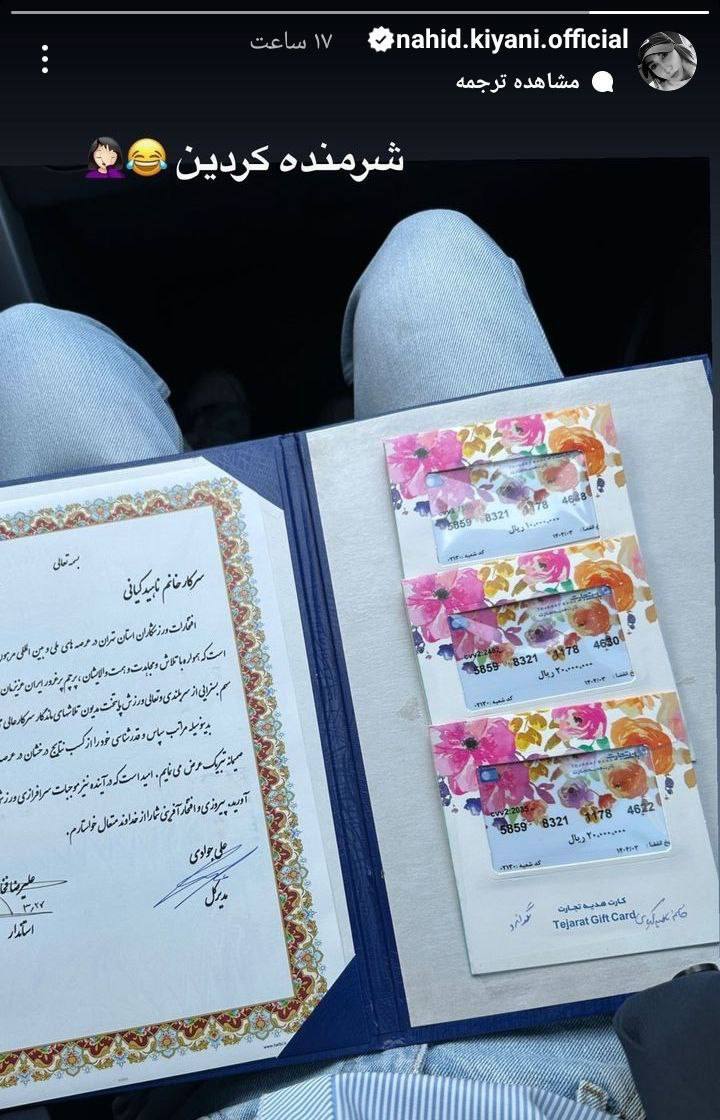 nahid.kiyani.official
۱۷ ساعت
مشاهده ترجمه
شرمنده کردین 😂🤦🏻‍♀️
بسمه تعالی
سرکار خانم ناهید کیانی
افتخارات ورزشکاران استان تهران در عرصه های ملی و بین المللی مرهون
است که همواره با تلاش و مجاهدت و همت والایشان، پرچم پرغرور ایران عزیزمان
سهم بسزایی از سربلندی و تعالی ورزش پایتخت مدیون تلاشهای ماندگار سرکار عالی
بدینوسیله مراتب سپاس و قدرشناسی خود را از کسب نتایج درخشان در عرصه
صمیمانه تبریک عرض می نمایم. امید است که در آینده نیز موجبات سرافرازی ورزش
آورید. پیروزی و افتخار آفرینی شما را از خداوند متعال خواستارم.
علی جوادی
مدیرکل
علیرضا فخا
۳,۲۷
استاندار
5859 8321 1178 4688
۱۰,۰۰۰,۰۰۰ ریال
۱۴۰۲/۰۳
کد شعبه :۰۲۱۳۰
cvv2:2482
5859 8321 1178 4630
۲۰,۰۰۰,۰۰۰ ریال
۱۴۰۲/۰۳
کد شعبه :۰۲۱۳۰
تجارت
cvv2:2035
5859 8321 1178 4622
۲۰,۰۰۰,۰۰۰ ریال
انقضا: ۱۴۰۲/۰۳
کد شعبه :۰۲۱۳۰
کارت هدیه تجارت
Tejarat Gift Card
خانم ناهید کیانی